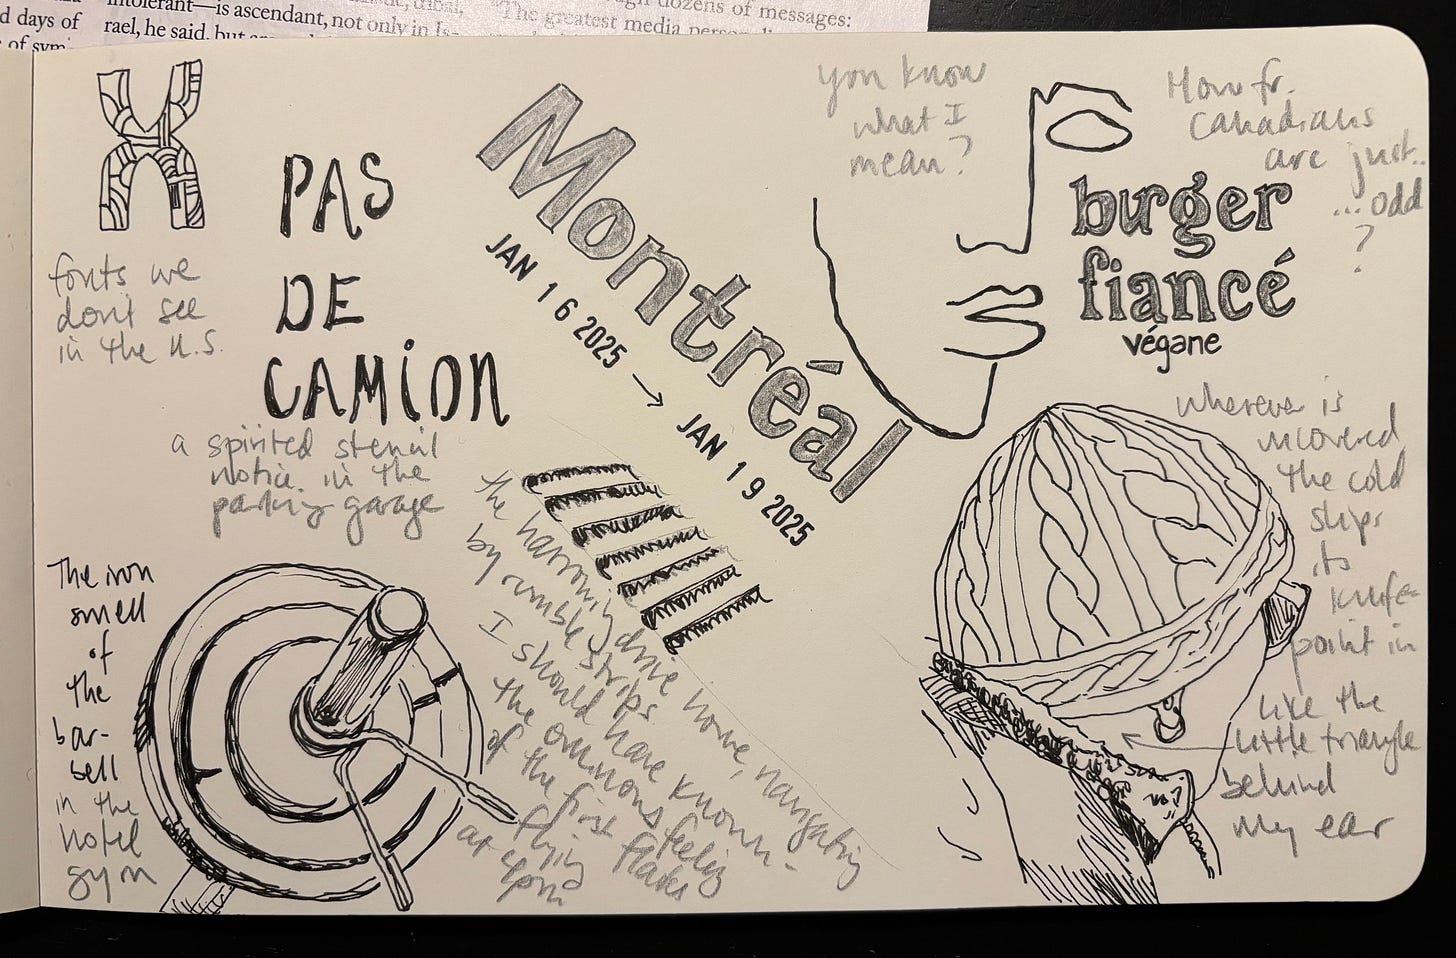 d days of
of sym
intolerant—is ascendant, not only in Is-
rael, he said, but
tribal,
dozens of messages:
"The greatest media
X
fonts we
don't see
in the U.S.
PAS
DE
CAMION
a spirited stencil
notice in the
parking garage
The iron
smell
of
the
bar-
bell
in the
hotel
gym
Montréal
JAN 16 2025 → JAN 19 2025
the harrowing drive home, navigating
by rumble strips
I should have known -
the ominous feeling
of the first flakes
flying
at 4pm
you know
what I
mean?
How fr.
Canadians
are just..
...odd
?
burger
fiancé
végane
wherever is
uncovered
the cold
slips
its
knife-
point in
like the
little triangle
behind
my ear